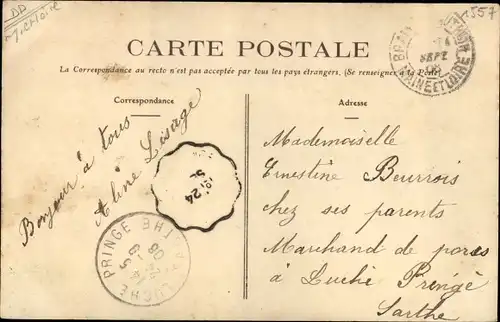 1557
CARTE POSTALE
La Correspondance au recto n'est pas acceptée par tous les pays étrangers. (Se renseigner à la Poste)
Correspondance
Adresse
Bonjour à tous
Aline Lesage
Mademoiselle
Ernestine Beurrois
chez ses parents
Marchand de porcs
à Luché Pringé
Sarthe
SEPT
MAINE ET LOIRE
24
LUCHE PRINGE
SARTHE